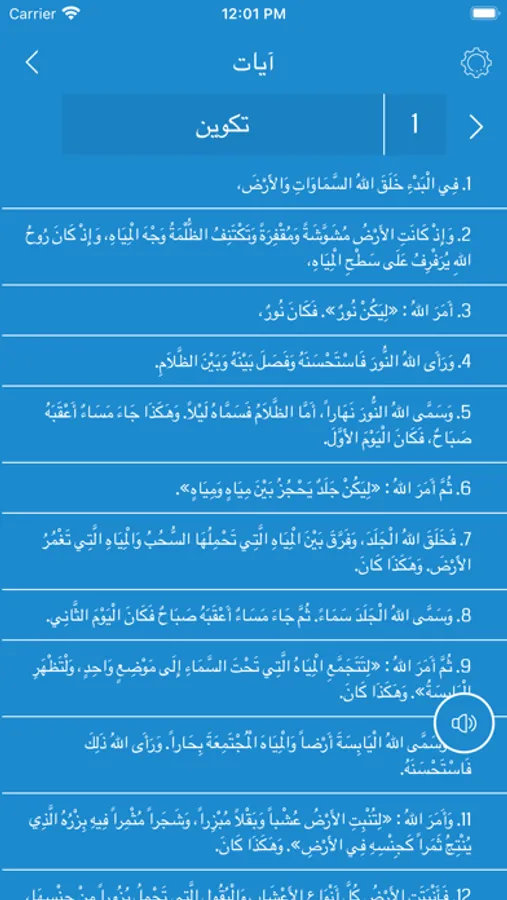 Carrier
12:01 PM
آيات
تكوين
1
1. فِي الْبَدْءِ خَلَقَ اللهُ السَّمَاوَاتِ وَالأَرْضَ،
2. وَإِذْ كَانَتِ الأَرْضُ مُشَوَّشَةً وَمُقْفِرَةً وَتَكْتَنِفُ الظُّلْمَةُ وَجْهَ الْمِيَاهِ، وَإِذْ كَانَ رُوحُ
اللهِ يُرَفْرِفُ عَلَى سَطْحِ الْمِيَاهِ،
3. أَمَرَ اللهُ: «لِيَكُنْ نُورٌ». فَكَانَ نُورٌ،
4. وَرَأَى اللهُ النُّورَ فَاسْتَحْسَنَهُ وَفَصَلَ بَيْنَهُ وَبَيْنَ الظَّلاَمِ.
5. وَسَمَّى اللهُ النُّورَ نَهَاراً، أَمَّا الظَّلاَمُ فَسَمَّاهُ لَيْلاً. وَهَكَذَا جَاءَ مَسَاءٌ أَعْقَبَهُ
صَبَاحٌ، فَكَانَ الْيَوْمَ الأَوَّلَ.
6. ثُمَّ أَمَرَ اللهُ: «لِيَكُنْ جَلَدٌ يَحْجُزُ بَيْنَ مِيَاهٍ وَمِيَاهٍ».
7. فَخَلَقَ اللهُ الْجَلَدَ، وَفَرَّقَ بَيْنَ الْمِيَاهِ الَّتِي تَحْمِلُهَا السُّحُبُ وَالْمِيَاهِ الَّتِي تَغْمُرُ
الأَرْضَ. وَهَكَذَا كَانَ.
8. وَسَمَّى اللهُ الْجَلَدَ سَمَاءً. ثُمَّ جَاءَ مَسَاءٌ أَعْقَبَهُ صَبَاحٌ فَكَانَ الْيَوْمَ الثَّانِي.
9. ثُمَّ أَمَرَ اللهُ: «لِتَتَجَمَّعِ الْمِيَاهُ الَّتِي تَحْتَ السَّمَاءِ إِلَى مَوْضِعٍ وَاحِدٍ، وَلْتَظْهَرِ
الْيَابِسَةُ». وَهَكَذَا كَانَ.
وَسَمَّى اللهُ الْيَابِسَةَ أَرْضاً وَالْمِيَاهَ الْمُجْتَمِعَةَ بِحَاراً. وَرَأَى اللهُ ذَلِكَ
فَاسْتَحْسَنَهُ.
11. وَأَمَرَ اللهُ: «لِتُنْبِتِ الأَرْضُ عُشْباً وَبَقْلاً مُبْزِراً، وَشَجَراً مُثْمِراً فِيهِ بِزْرُهُ الَّذِي
يُنْتِجُ ثَمَراً كَجِنْسِهِ فِي الأَرْضِ». وَهَكَذَا كَانَ.
12. فَأَنْبَتَتِ الأَرْضُ كُلَّ أَنْوَاعِ الأَعْشَابِ وَالْبُقُولِ الَّتِي تَحْمِلُ بُزُوراً مِنْ جِنْسِهَا،